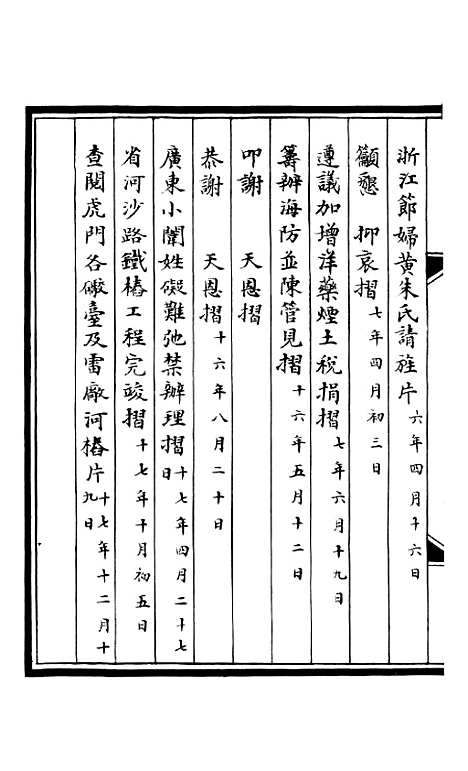 浙江節婦黃朱氏請旌片六年四月十六日
籲懇　抑哀摺七年四月初三日
遵議加增洋藥煙土稅捐摺七年六月十九日
籌辦海防並陳管見摺十六年五月十二日
叩謝　天恩摺
恭謝　天恩摺十六年八月二十日
廣東小闈姓礙難弛禁辦理摺十七年四月二十七日
省河沙路鐵樁工程完竣摺十七年十月初五日
查閱虎門各礮臺及雷厰河樁片十七年十二月十九日